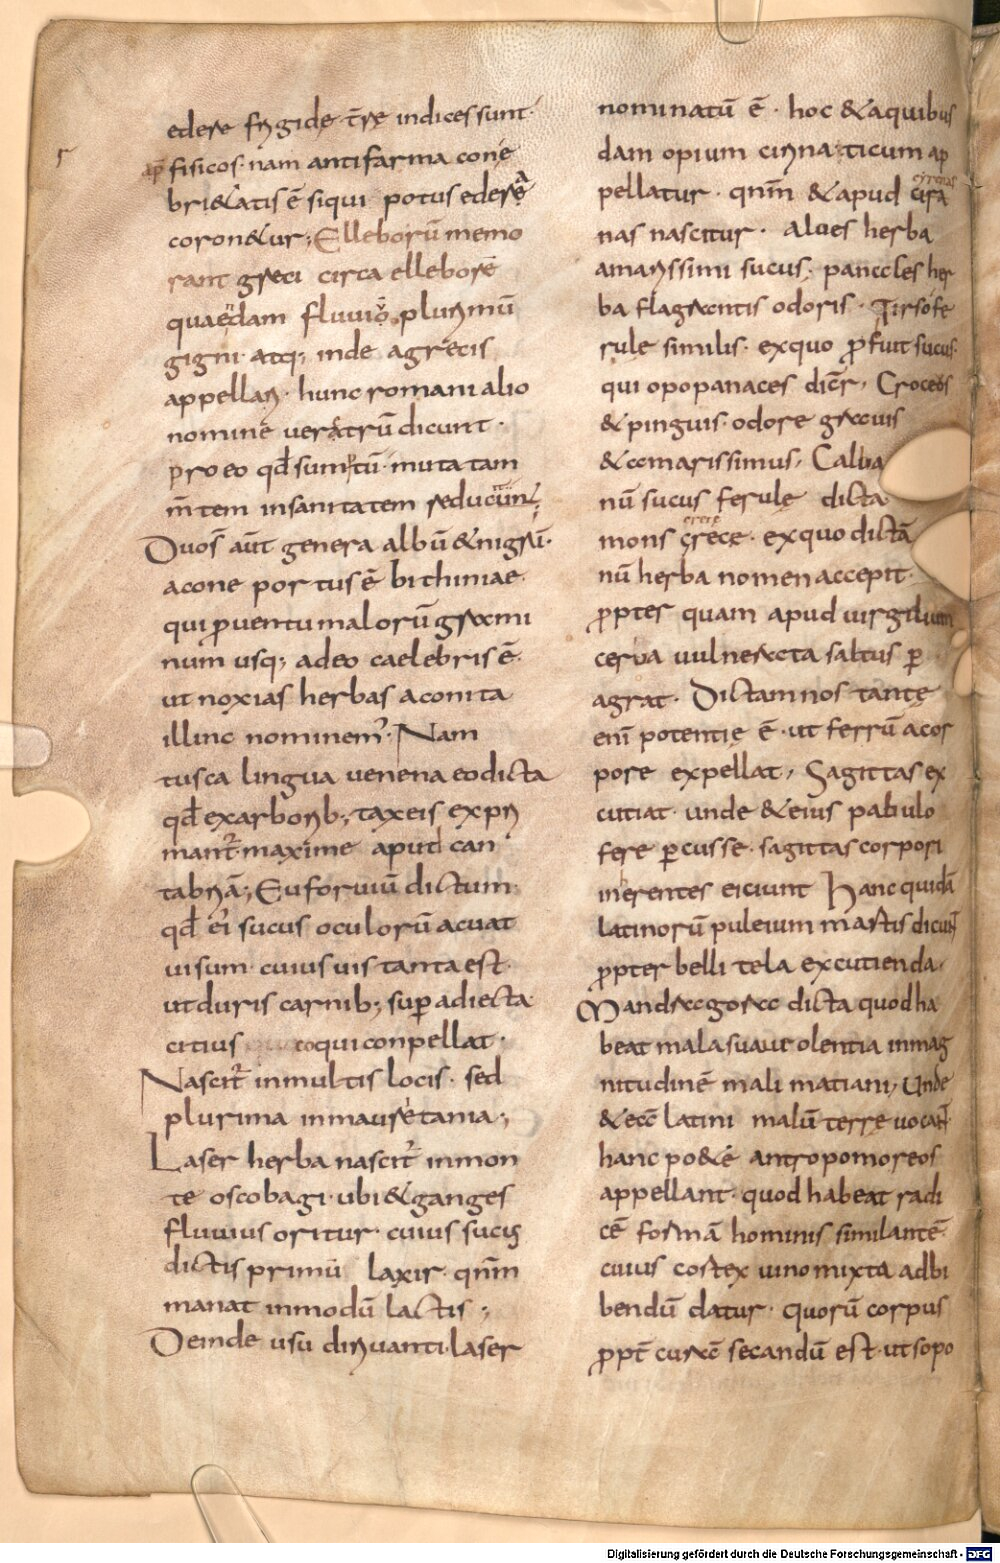 edere frigide t̄rę indices sunt
ap̄ fisicos · nam antifarma cone
bri&atis ē siqui potus edere
coron&ur; Elleborū memo
rant greci circa elleborē
quaedam fluuiō plurimū
gigni · atq; inde agrecis
appellari · hunc romani alio
nomine veratrū dicunt ·
pro eo qđ sumtū · mutatam
m̄tem insanitatem reducunt;
Duos aūt genera albū & nigrū ·
acone portus ē bithiniae ·
qui ꝓventu malorū grami
num usq; adeo caelebris ē ·
ut noxias herbas aconita
illinc nominem̄ · Nam
tusca lingua venena eo dicta
qđ ex arborib; taxeis expri
mant̄ maxime apud can
tabriā; Euforuiū dictum
qđ ei sucus oculorū acuat
uisum · cuius uis tanta est ·
ut duris carnib; suꝑ adiecta
citius coqui conpellat ·
Nascit̄ in multis locis · sed
plurima in mauretania ·;
Laser herba nascit̄ in mon
te oscobagi · ubi & ganges
fluuius oritur · cuius sucus
dictis primū laxir · qnm̄
manat in modū lactis ·;
Deinde usu dirivanti · laser
nominatū ē · hoc & a quibus
dam opium cirinaticum ap
pellatur · qnm̄ & apud cira
cyrenas
nas nascitur · Aloes herba
amarissimi sucus · panecles her
ba flagrantis odoris · Tirsofe
rule similis · ex quo ꝓfuit sucus ·
qui opopanaces dicr̄, Croceos
& pinguis · odore grauis
& amarissimus, Calba
nū sucus ferulę dicta
mons crece · ex quo dictā
nū herba nomen accepit ·
ꝓpter quam apud uirgilium
cerua uulnerata saltus ꝑ
agrat · Dictamnos tantę
eni potentię ē · ut ferrū acor
pore expellat, Sagittas ex
cutiat · unde & eius pabulo
fere ꝑcusse · sagittas corpori
inerentes eiciunt Hanc quidā
latinorū puleium martis dicunt
ꝓpter belli tela excutienda ·
Mandragora dicta quod ha
beat mala suaue olentia in mag
nitudinē mali matiani, Unde
& eā latini malū terre uocant ·
hanc po&ę antropomoreos
appellant · quod habeat radi
cē formā hominis similantē ·
cuius cortex uino mixta adbi
bendū datur · quorū corpus
ꝓpt̄ curā secandū est · ut sopo
Digitalisierung gefördert durch die Deutsche Forschungsgemeinschaft - DFG